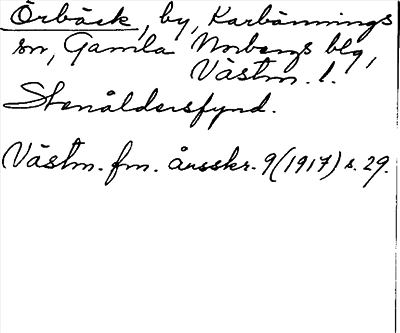 Örbäck, by, Karbännings
sn, Gamla Norbergs blg,
Västm. l.
Stenåldersfynd.
Västm. fm. årsskr. 9 (1917) s. 29.